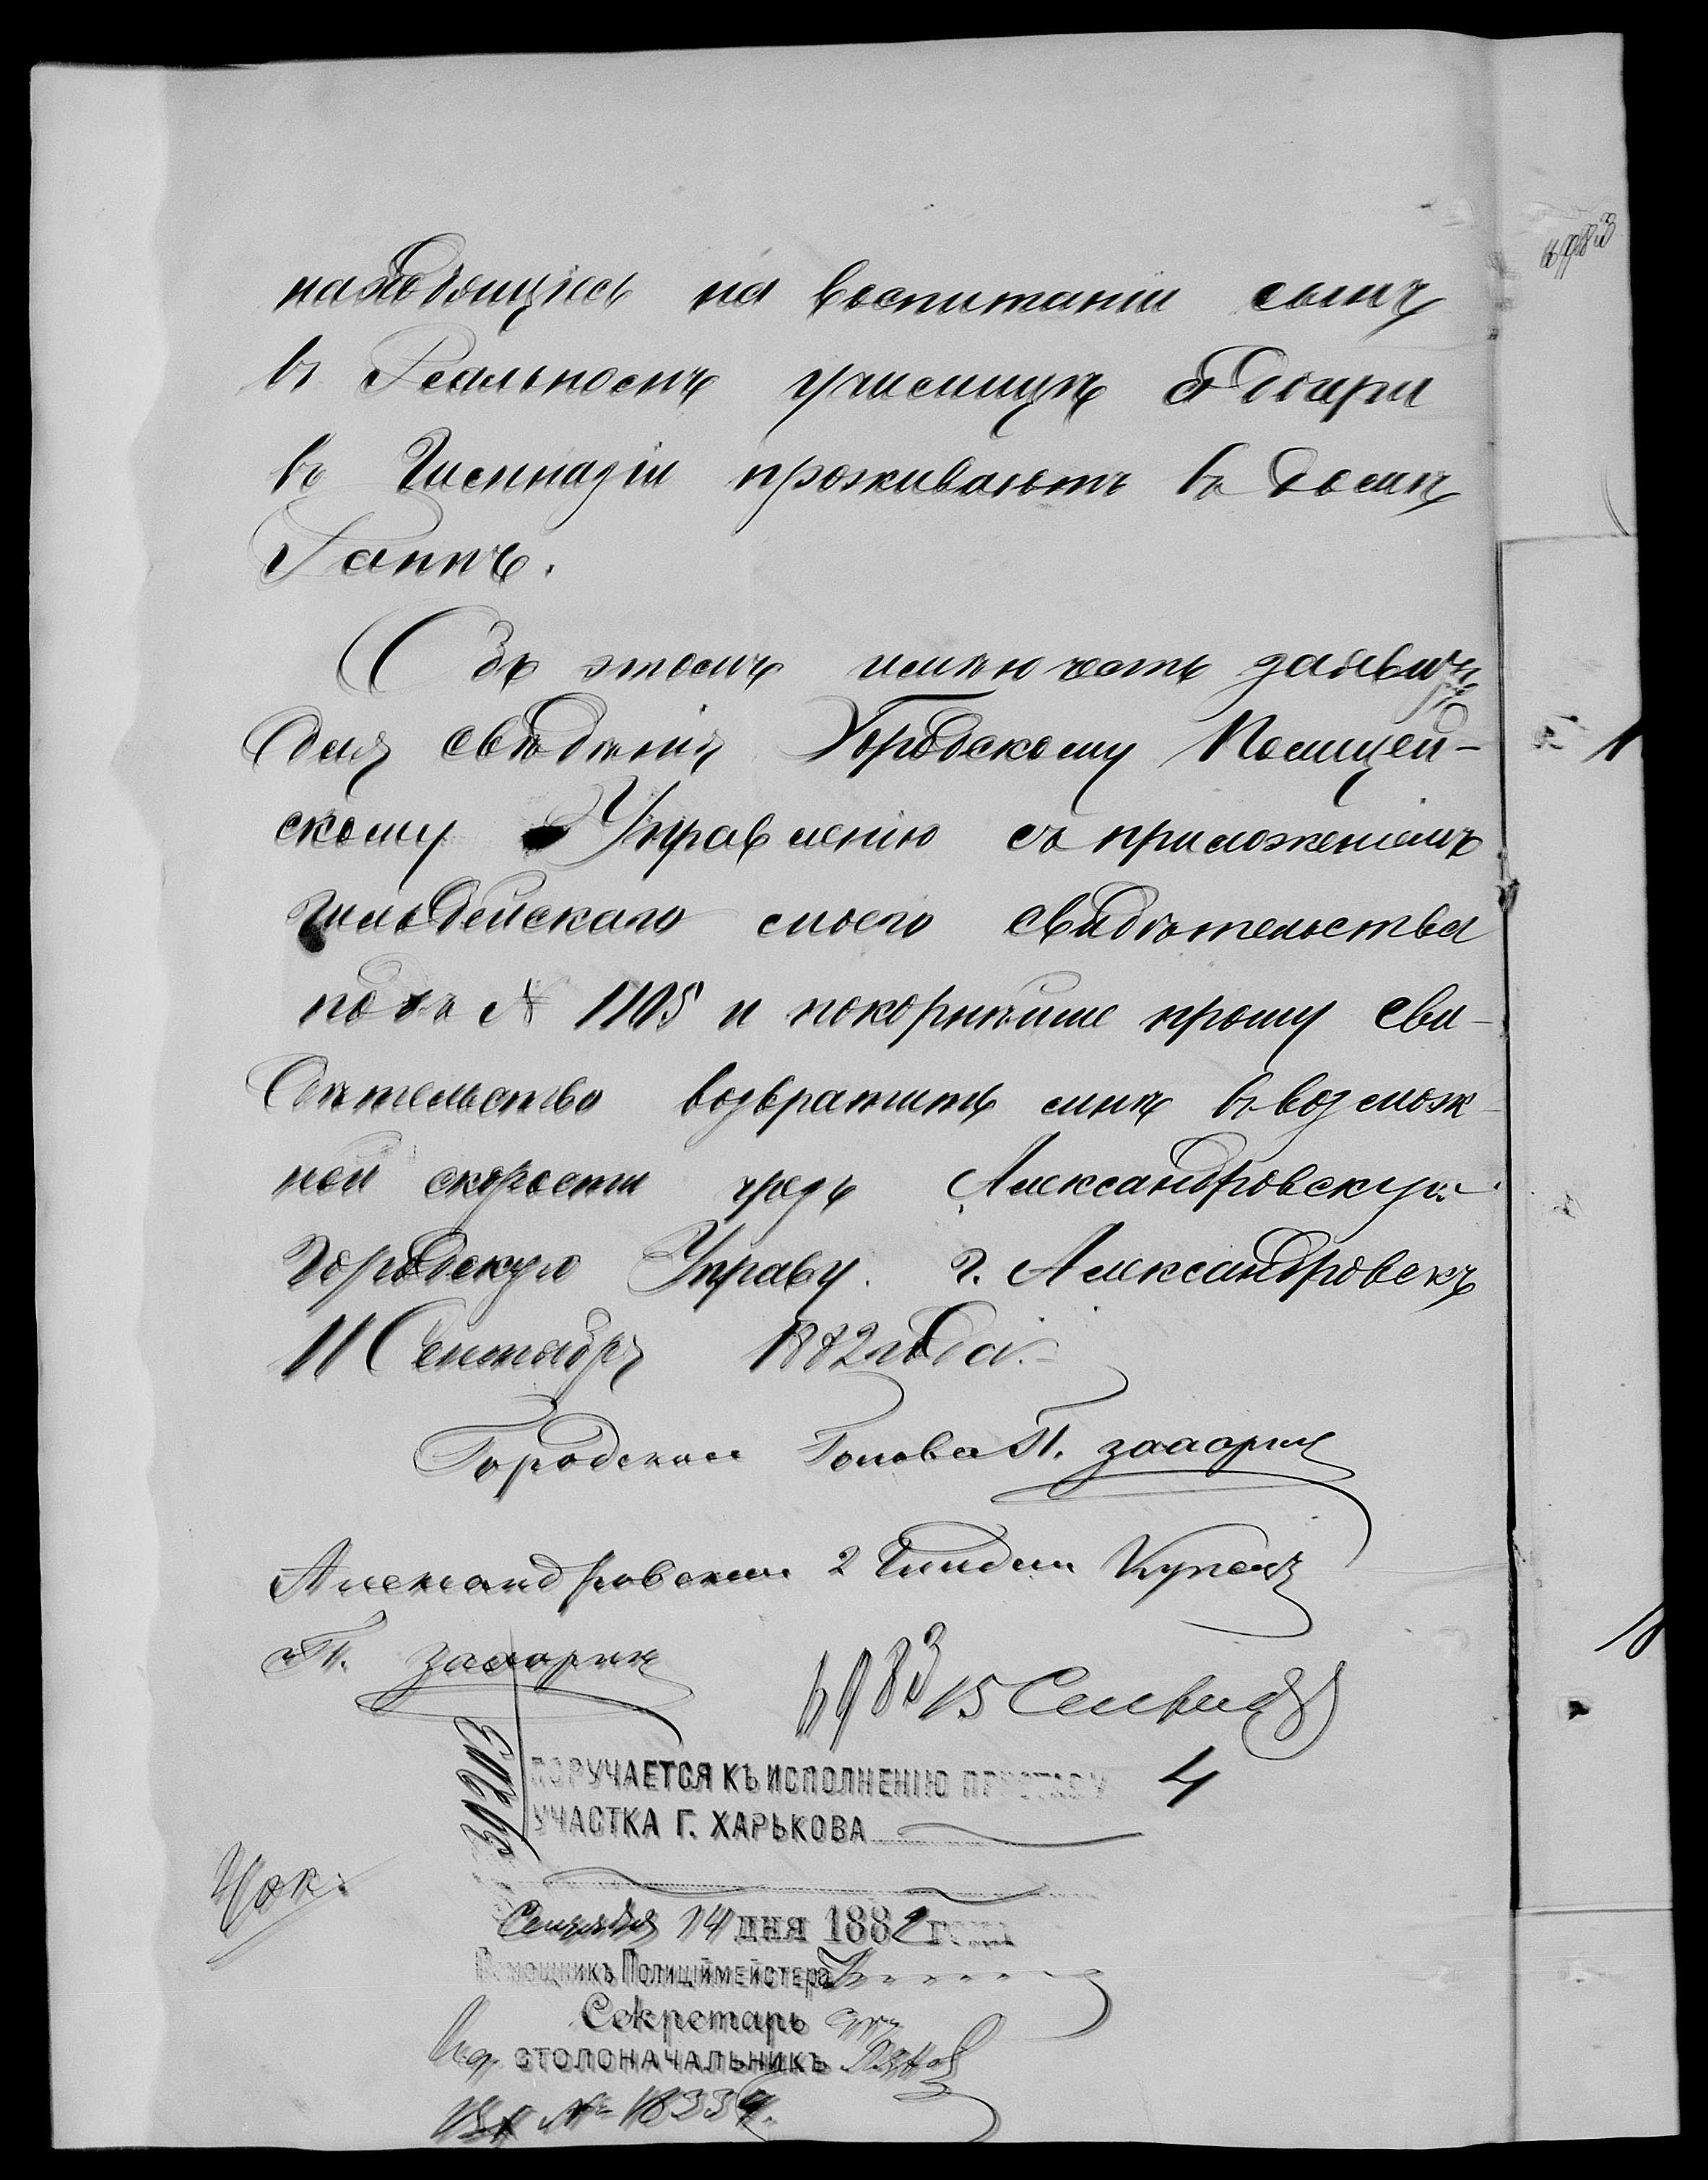 6983
находящіеся на воспитаніи сынъ
въ Реальномъ училищѣ а дочери
въ Гимназіи проживаютъ въ домѣ
Раппъ.
Объ этомъ имѣю честь заявить
для свѣдѣнія Городскому Полицей-
скому Управленію съ приложеніемъ
гильдейскаго моего свидѣтельства
подъ № 1105 и покорнѣйше прошу сви-
дѣтельство возвратить мнѣ въ возмож-
ной скорости чрезъ Александровскую
Городскую Управу. г. Александровскъ
11 Сентября 1882 года.
Городской Голова П. Захарин
Александровскій 2 Гильдіи Купецъ
П. Захарин
6983 15 Сентября
ПОРУЧАЕТСЯ КЪ ИСПОЛНЕНІЮ ПРИСТАВУ 4
УЧАСТКА Г. ХАРЬКОВА
Сентября 14 дня 1882 года
Помощникъ Полиціймейстера
Секретарь
СТОЛОНАЧАЛЬНИКЪ
Вх № 18334.